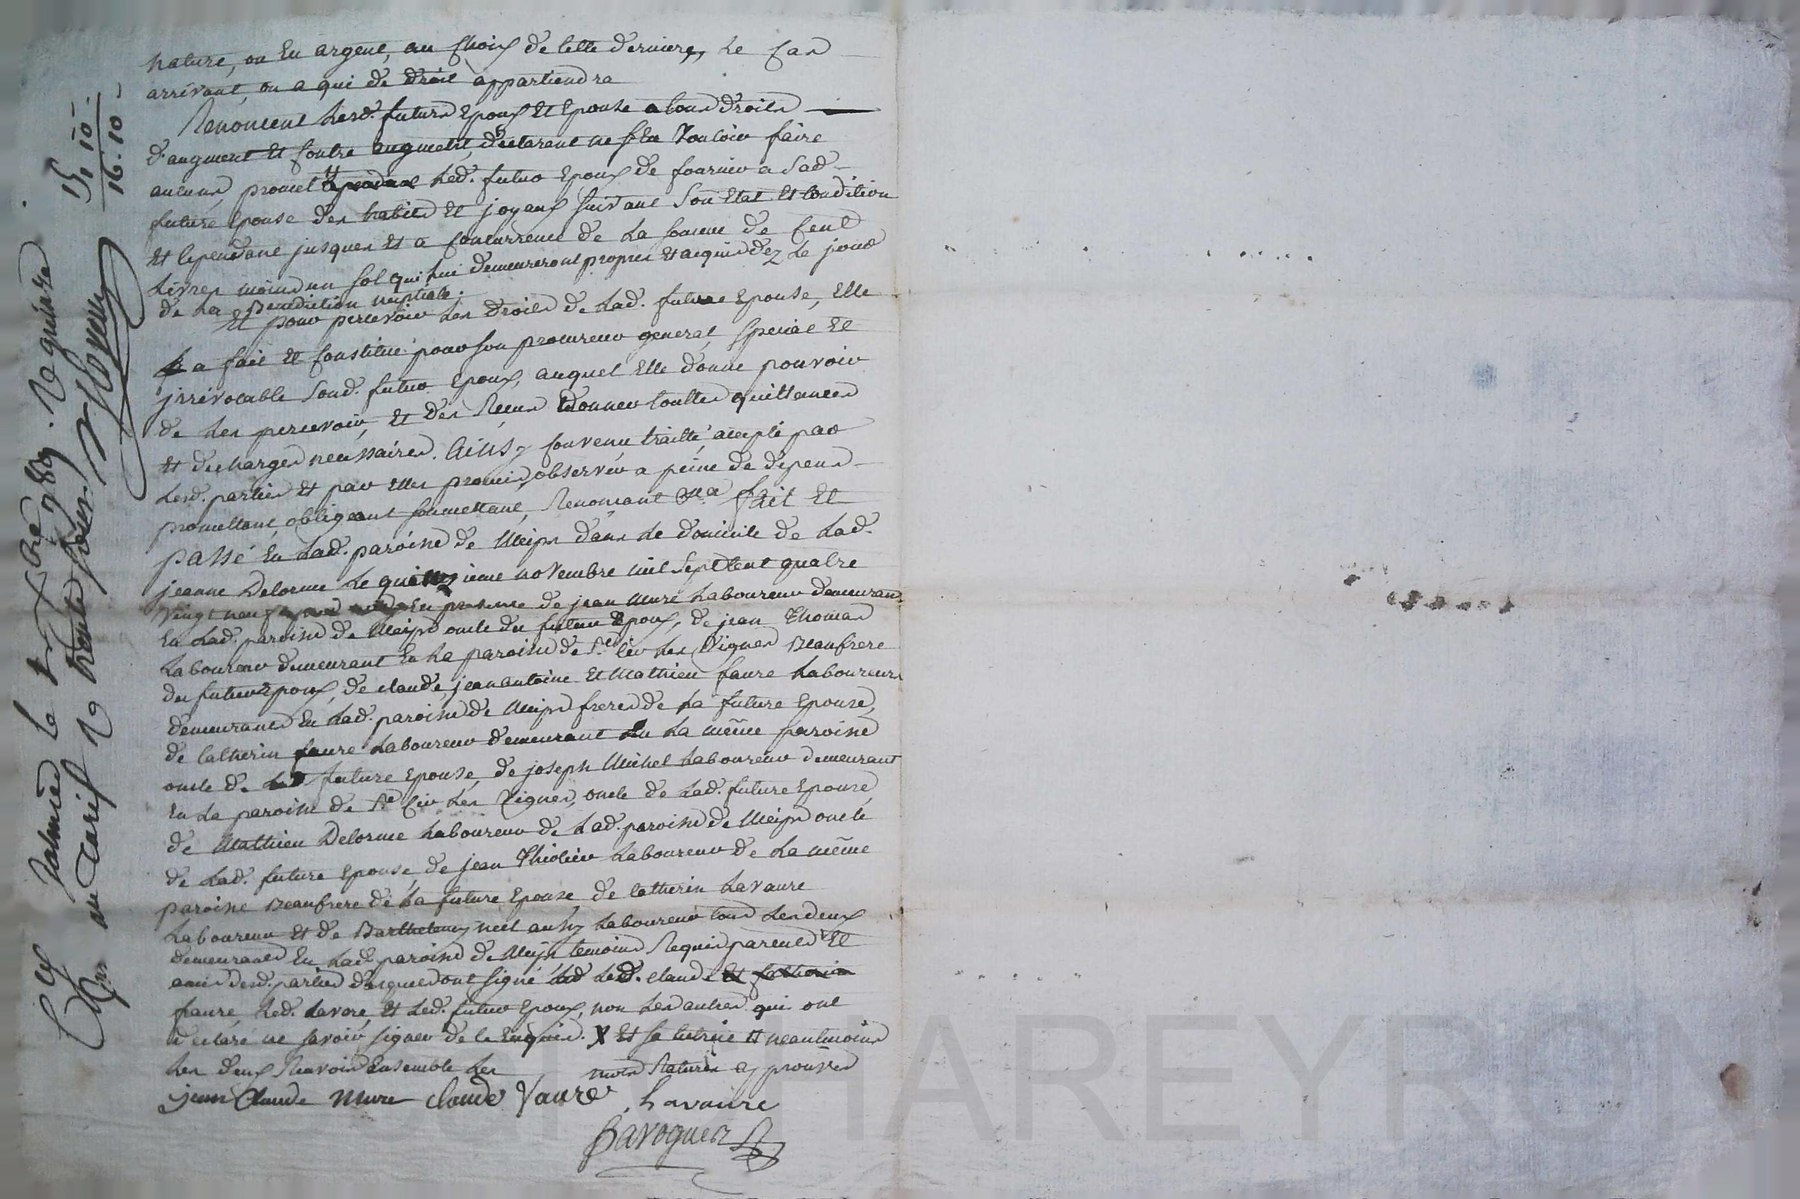 nature, ou En argent, au Choix de Cette derniere, Le Cas
arrivant, ou a qui de droit appartiendra
Renoncent Lesd. futurs Epoux Et Epouse a tous droits
d'augment Et Contre augment, declarent ne s'En Vouloir faire
aucuns, promet Led. futur Epoux de fournir a Sad.
future Epouse des habits Et joyaux Suivant Son Etat Et Condition
Et Cependant jusques Et a Concurrence de La somme de Cent
Livres moins un sol qui lui demeureront propres Et acquis dez Le jour
de La Benediction nuptiale.
Et pour percevoir Les droits de Lad. future Epouse, Elle
a fait Et Constitué pour Son procureur general, Special Et
jrrevocable Sond. futur Epoux, auquel Elle donne pouvoir
de Les percevoir, Et des Reçus donner touttes quittances
Et decharges necessaires. Ainsy Convenu traitté, accepté par
Lesd. parties Et par Elles promis, observer a peine de depens
promettant, obligeant soumettant, Renonçant &a fait Et
passé En Lad. paroisse de Meijs dans Le domicile de Lad.
jeanne Delorme Le quinzieme novembre mil Sept Cent quatre
Vingt neuf En presence de jean Mure Laboureur demeurant
En Lad. paroisse de Meijs oncle du futur Epoux, de jean Thomas
Laboureur demeurant En La paroisse de St. Cir Les Vignes Beaufrere
du futur Epoux, de claude, jean antoine Et Mathieu faure Laboureurs
demeurants En Lad. paroisse de Meijs freres de La future Epouse,
de Catherin faure Laboureur demeurant En La même paroisse
oncle de future Epouse, de joseph Michel Laboureur demeurant
En La paroisse de St. Cir Les Vignes, oncle de Lad. future Epouse,
de Mathieu Delorme Laboureur de Lad. paroisse de Meijs oncle
de Lad. future Epouse, de jean Thiolier Laboureur de La même
paroisse Beaufrere de La future Epouse, de Catherin Lavaure
Laboureur Et de Barthelemy neel aussy Laboureur tous Les deux
demeurants En Lad. paroisse de Meijs temoins Requis parents Et
amis desd. parties desquels ont signé Led. claude Et Catherin
faure, Led. Lavore, Et Led. futur Epoux, non Les autres qui ont
declaré ne savoir signer de ce Enquis. X Et sa lettrée Et neantmoins
Les deux Renvois Ensemble Les mots Raturés approuvés
jean Claude Mure claude Vaure Lavaure
Baroguez
15. 10
16. 10
au tarif
HAREYRON